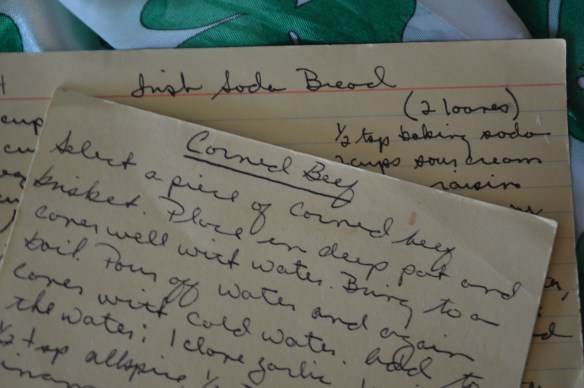 Irish Soda Bread
(2 loaves)
cup
½ tsp baking soda
2 cups sour cream
raisins
Corned Beef
Select a piece of corned beef
brisket. Place in deep pot and
cover well with water. Bring to a
boil. Pour off water and again
cover with cold water. Add to
the water: 1 clove garlic
½ tsp allspice ½